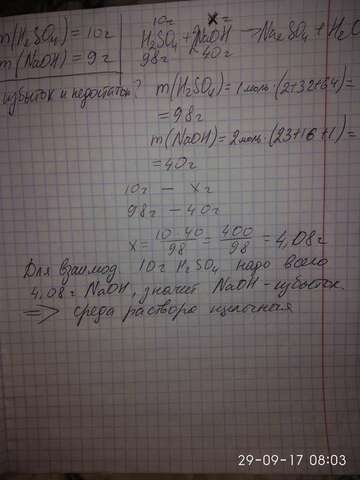 10г xг
m(H₂SO₄) = 10г | H₂SO₄ + 2NaOH → Na₂SO₄ + H₂O
m(NaOH) = 9г | 98г 40г
избыток и недостаток? m(H₂SO₄) = 1моль·(2+32+64)=
= 98г
m(NaOH) = 2моль·(23+16+1)=
= 40г
10г – xг
98г – 40г
x = 10·40/98 = 400/98 = 4,08г
Для взаимод. 10г H₂SO₄ надо всего
4,08г NaOH, значит NaOH – избыток.
⇒ среда раствора щелочная
29-09-17 08:03